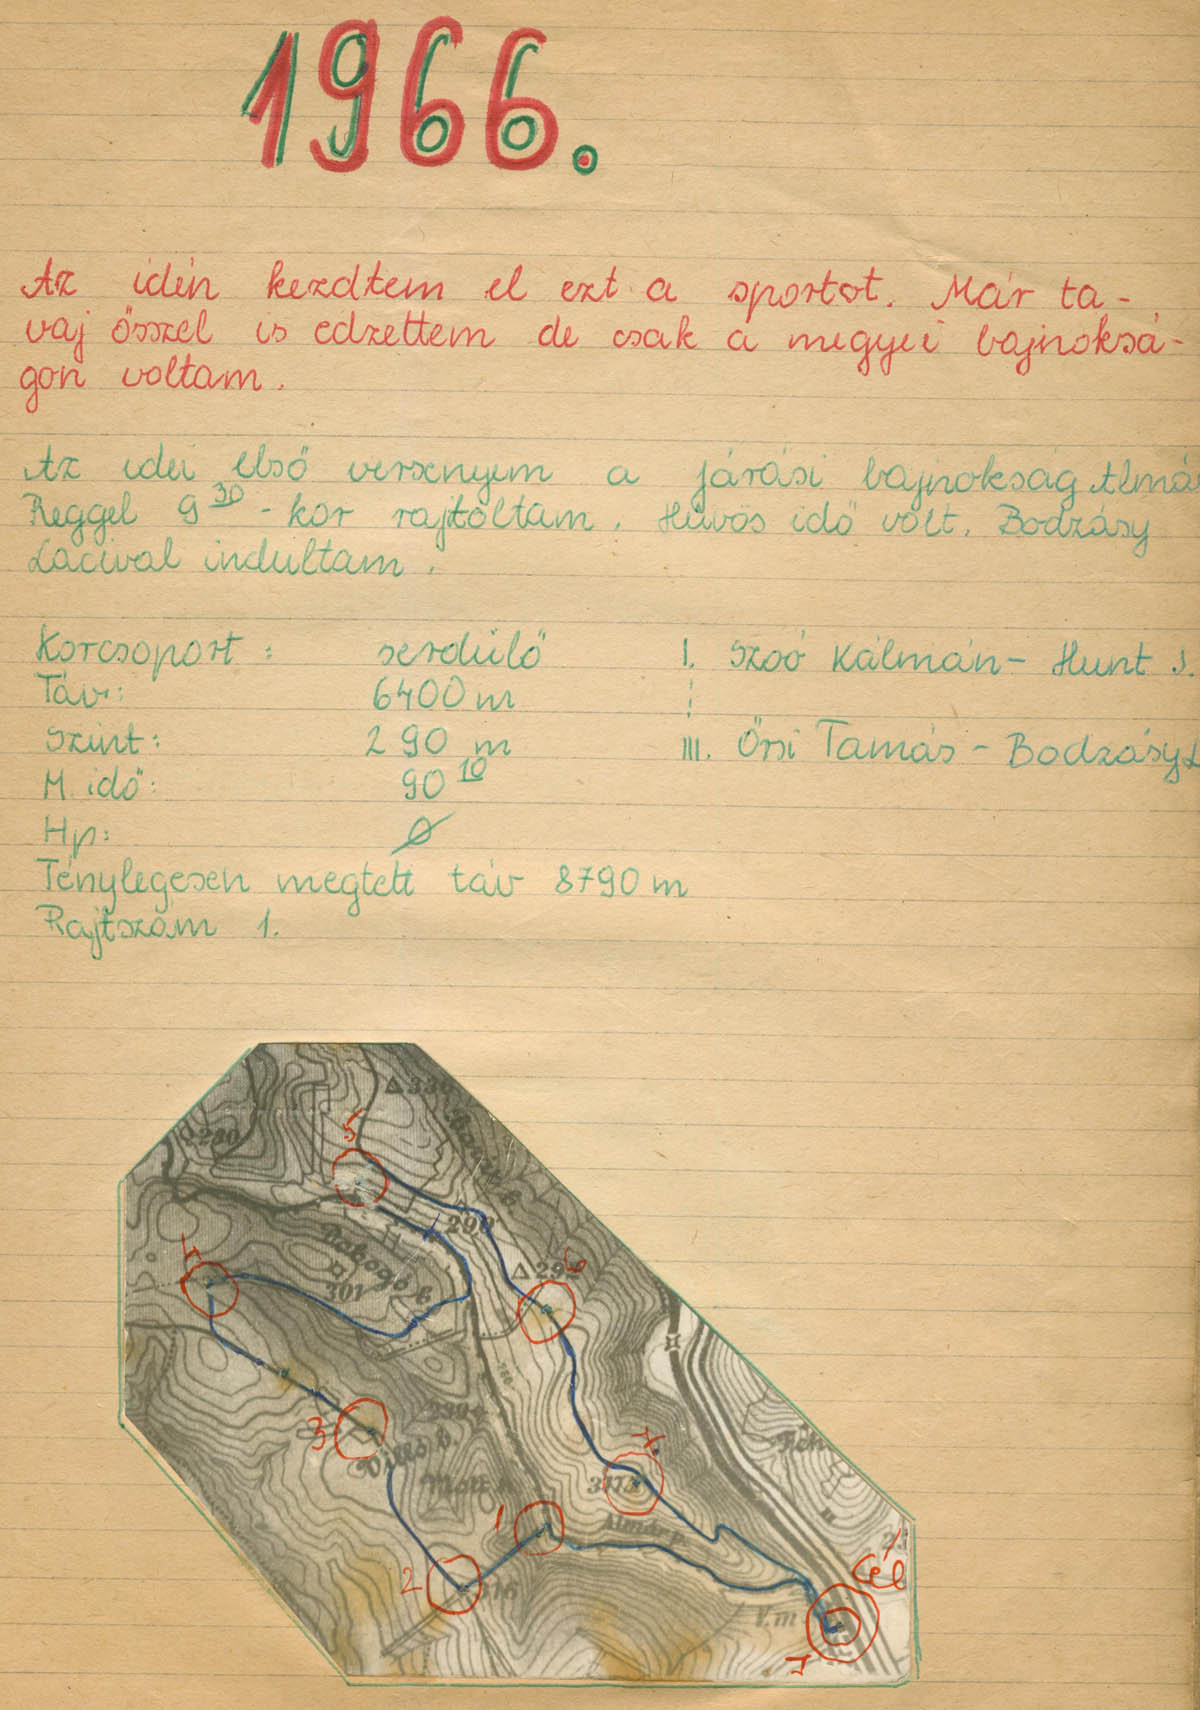 1966.
Az idén kezdtem el ezt a sportot. Már ta-
vaj ősszel is edzettem de csak a megyei bajnoksá-
gon voltam.
Az idei első versenyem a járási bajnokság Almá
Reggel 9 30 -kor rajtoltam. Hűvös idő volt. Bodzásy
Lacival indultam.
Korcsoport: serdülő I. Szoó Kálmán - Hunt J.
Táv: 6400 m
Szint: 290 m III. Őrsi Tamás - Bodzásy L
M. idő: 90 10
Hp: Ø
Ténylegesen megtett táv 8790 m
Rajtszám 1.
5
290
6
4
301
3
7.
1
2
Cél
V.m